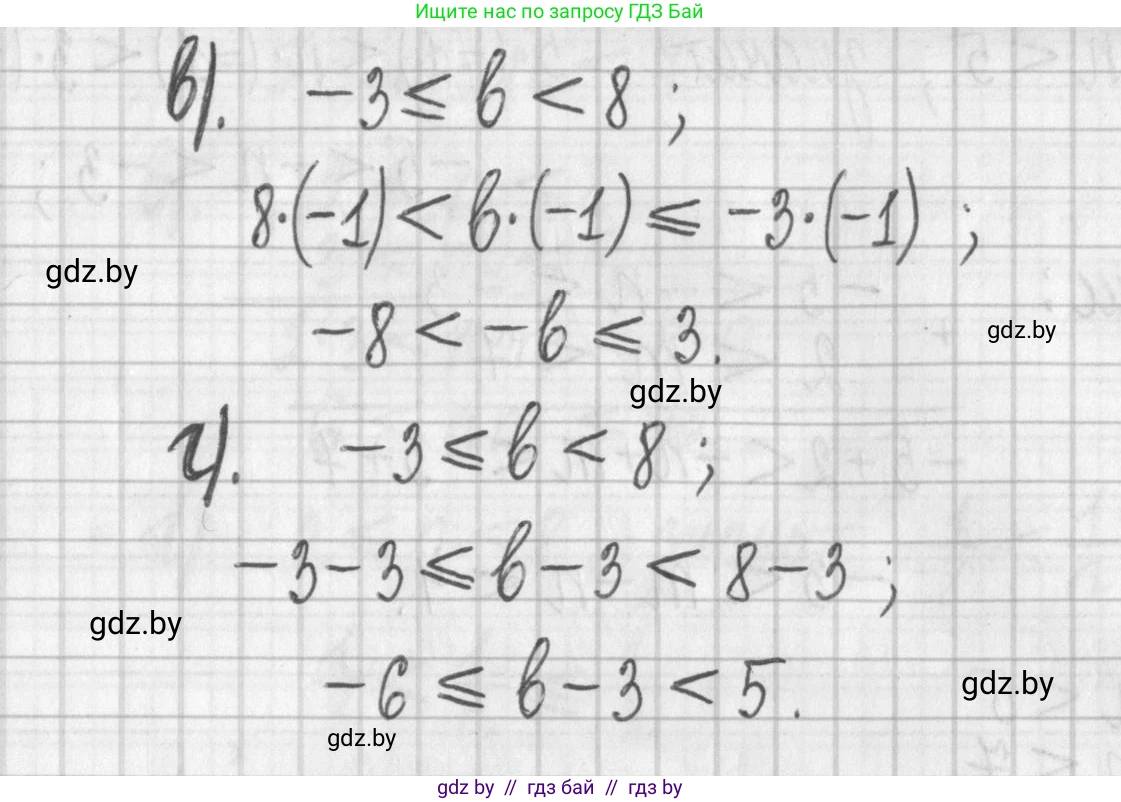 Ищите нас по запросу ГДЗ Бай
в). -3 ≤ b < 8 ;
8·(-1) < b·(-1) ≤ -3·(-1) ;
gdz.by
-8 < -b ≤ 3.
gdz.by
gdz.by
г). -3 ≤ b < 8 ;
-3-3 ≤ b-3 < 8-3 ;
gdz.by
-6 ≤ b-3 < 5.
gdz.by
gdz.by
gdz by // гдз бай // гдз by